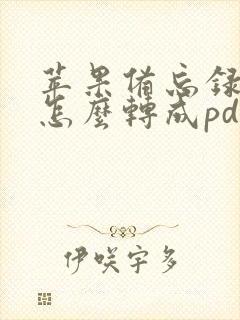 苹果备忘録
怎麼轉成pd
伊咲宇多